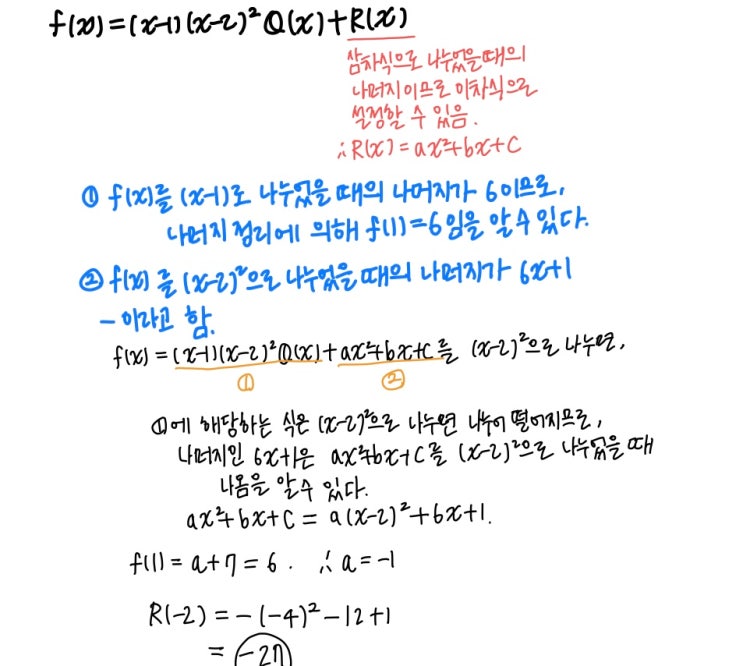 f(x)=(x-1)(x-2)²Q(x)+R(x)
삼차식으로 나누었을때의
나머지이므로 이차식으로
설정할 수 있음.
∴R(x)=ax²+bx+c
① f(x)를 (x-1)로 나누었을 때의 나머지가 6이므로,
나머지 정리에 의해 f(1)=6임을 알 수 있다.
② f(x)를 (x-2)²으로 나누었을 때의 나머지가 6x+1
-이라고 함.
f(x)=(x-1)(x-2)²Q(x)+ax²+bx+c를 (x-2)²으로 나누면,
① ②
①에 해당하는 식은 (x-2)²으로 나누면 나누어 떨어지므로,
나머지인 6x+1은 ax²+bx+c를 (x-2)²으로 나누었을 때
나옴을 알 수 있다.
ax²+bx+c = a(x-2)²+6x+1.
f(1)=a+7=6. ∴a=-1
R(-2)=-(-4)²-12+1
= -27